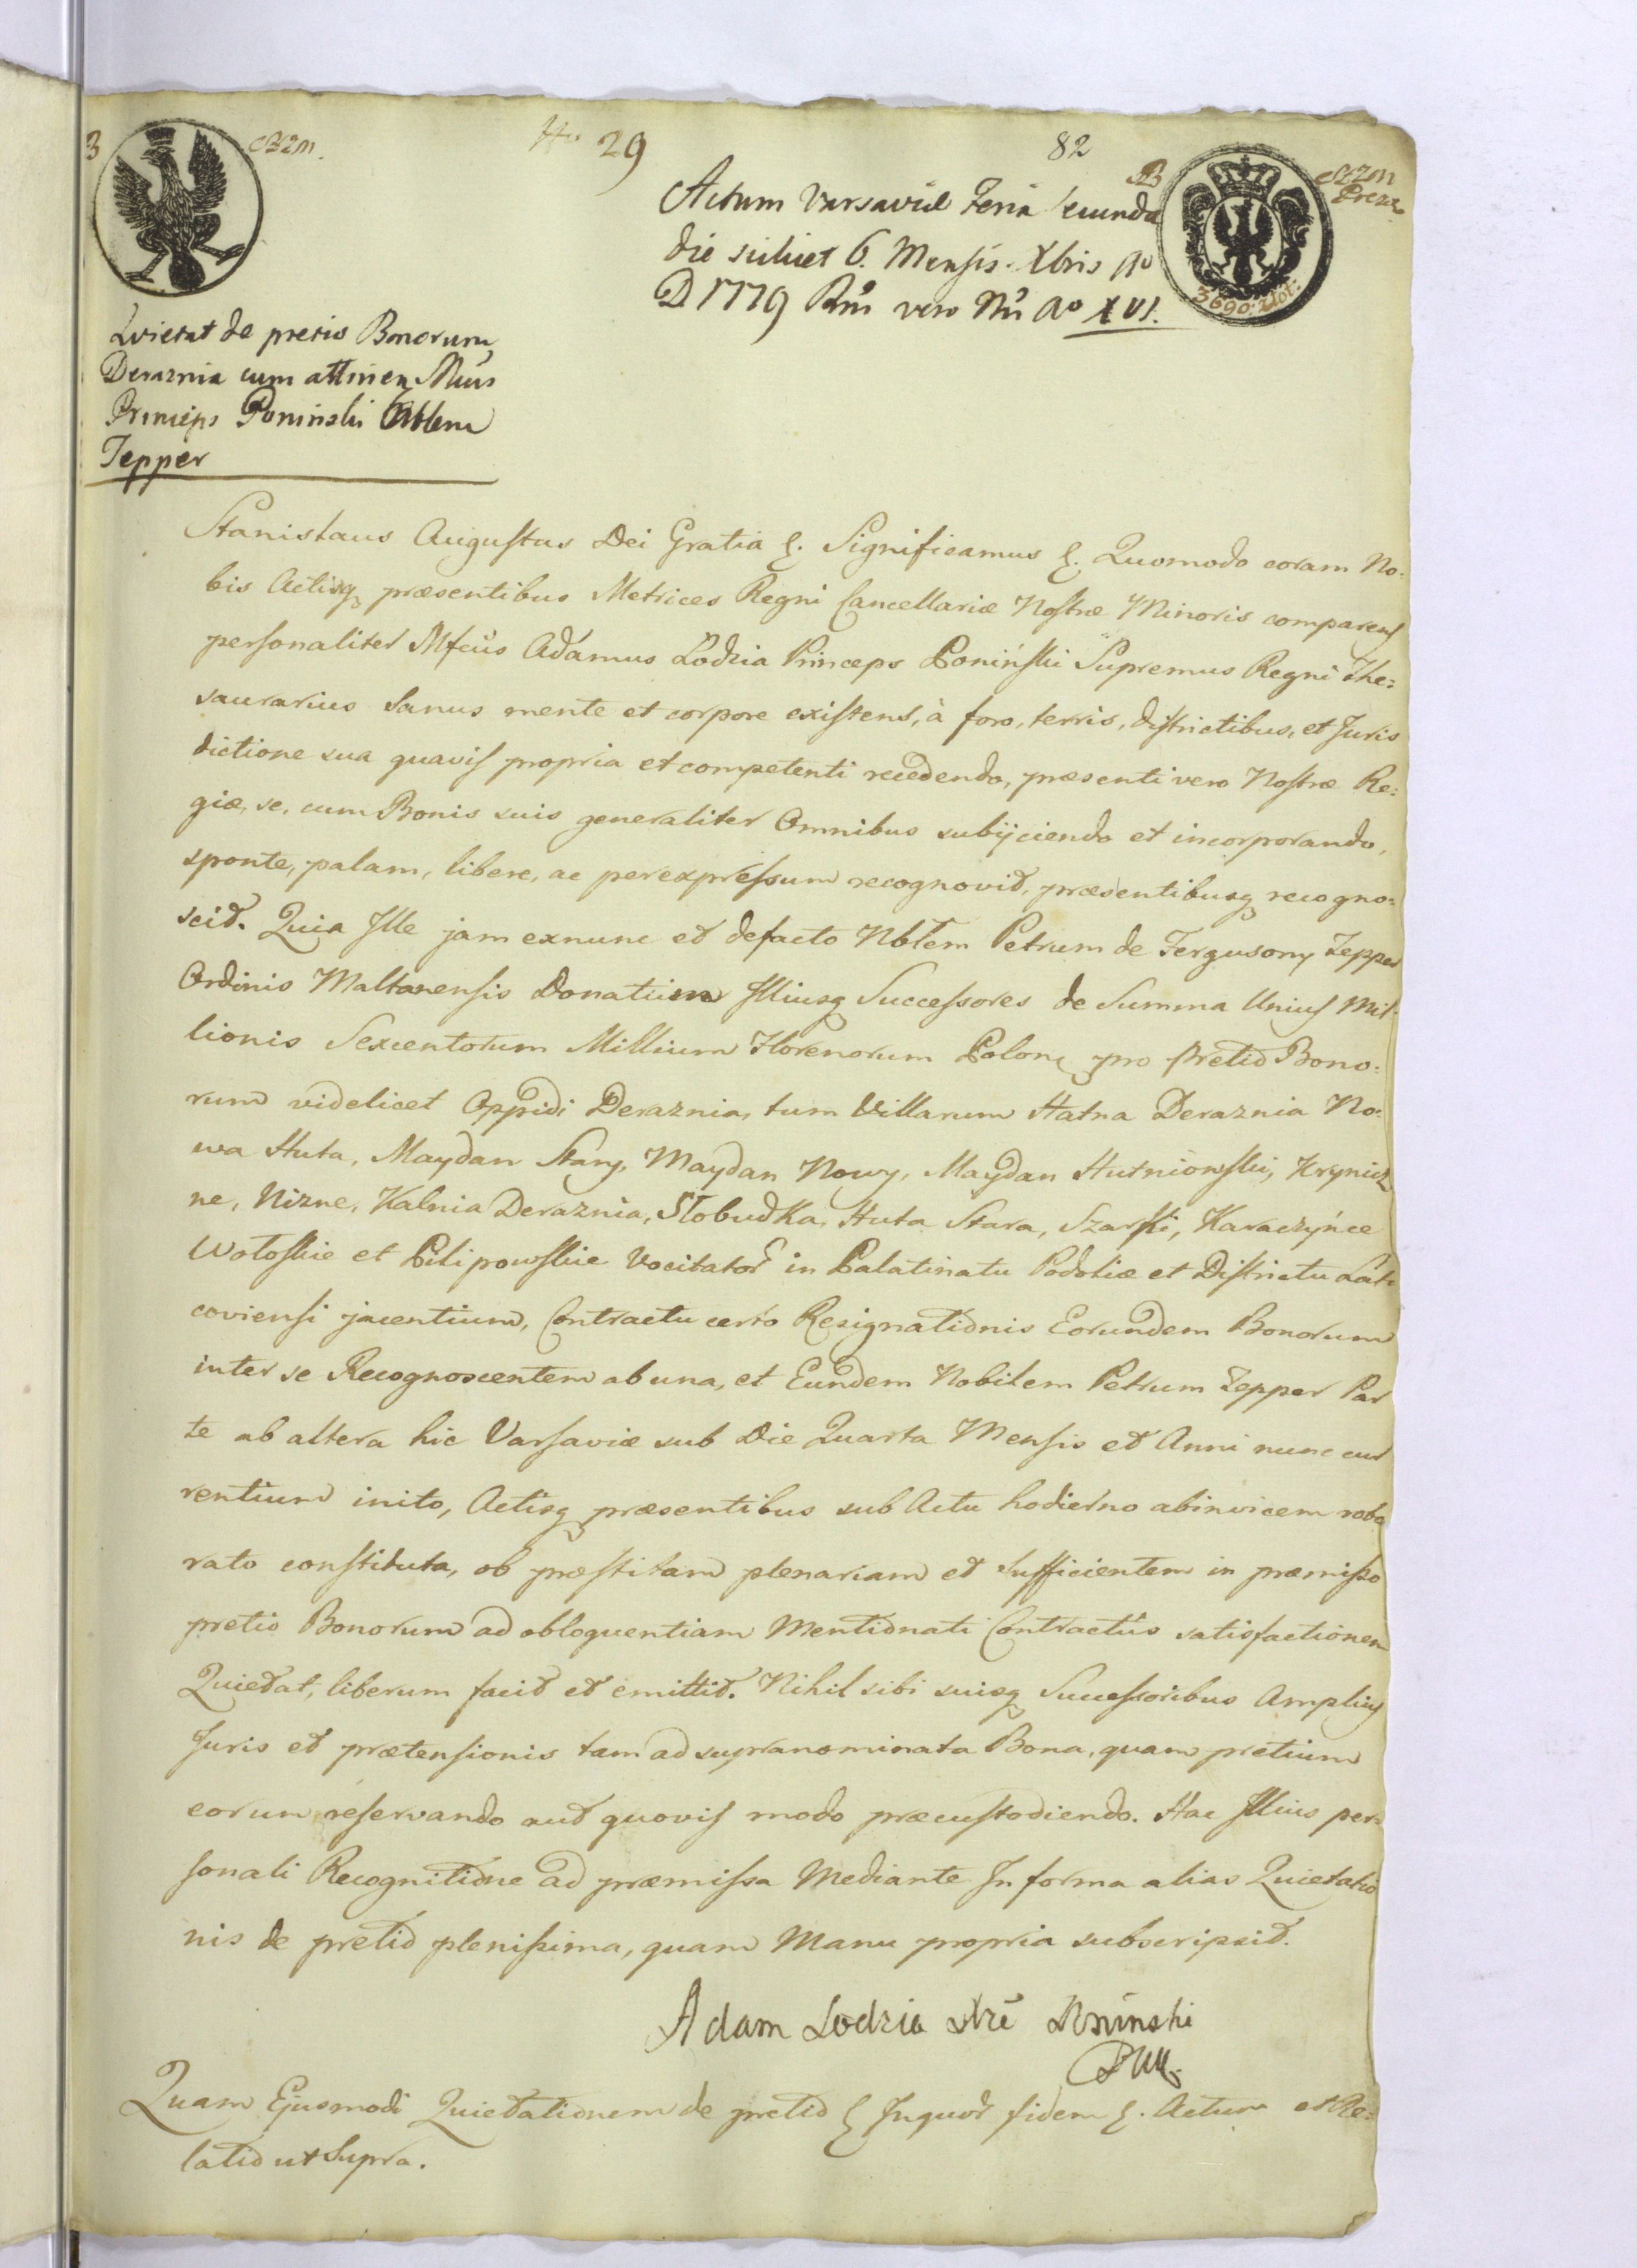 29
82
Actum Varsaviæ Feria secunda
die scilicet 6. Mensis Xbris Aº
D 1779 Rni vero Nri Aº XVI.
3690. Złot:
Quietat de pretio Bonorum
Deraznia cum attinen Mcus
Princeps Poninski Nblem
Tepper
Stanislaus Augustus Dei Gratia &. Significamus &. Quomodo coram No:
bis Actisq præsentibus Metrices Regni Cancellariæ Nostræ Minoris comparens
personaliter Mfcus Adamus Lodzia Princeps Poniński Supremus Regni The:
saurarius Sanus mente et corpore existens, à foro, terris, districtibus, et Juris
dictione sua quavis propria et competenti recedendo, præsenti vero Nostræ Re:
giæ, se, cum Bonis suis generaliter Omnibus subijciendo et incorporando,
sponte, palam, libere, ac per expressum recognovit, præsentibusq recogno:
scit. Quia Ille jam exnunc et defacto Nblem Petrum de Fergusony Tepper
Ordinis Maltanensis Donatum Illiusq Successores de Summa Unius Mil:
lionis Sexcentorum Millium Florenorum Polon pro Pretio Bono:
rum videlicet Oppidi Deraznia, tum Villarum Hatna Deraznia No:
wa Huta, Maydan Stary, Maydan Nowy, Maydan Hutniowski, Krynicz
ne, Nizne, Kalnia Deraznia, Słobudka, Huta Stara, Szarki, Karaczyńce
Wołoskie et Pilipowskie Vocitator in Palatinatu Podoliæ et Districtu Laty
coviensi jacentium, Contractu certo Resignationis Eorundem Bonorum
inter se Recognoscentem ab una, et Eundem Nobilem Petrum Tepper Par
te ab altera hic Varsaviæ sub Die Quarta Mensis et Anni nunc cur
rentium inito, Actisq præsentibus sub Actu hodierno abinvicem robo
rato constituta, ob præstitam plenariam et sufficientem in præmisso
pretio Bonorum ad obloquentiam Mentionati Contractus satisfactionem
Quietat, liberum facit et emittit. Nihil sibi suisq Successoribus Amplius
Juris et prætensionis tam ad supranominata Bona, quam pretium
eorum reservando aut quovis modo præcustodiendo. Hac Illius per:
sonali Recognitione ad præmissa Mediante In forma alias Quietatio
nis de pretio plenissima, quam Manu propria subscripsit.
Adam Lodzia Poninski
Quam Ejusmodi Quietationem de pretio & Inquor fidem &. Actum et Re:
latio ut Supra.